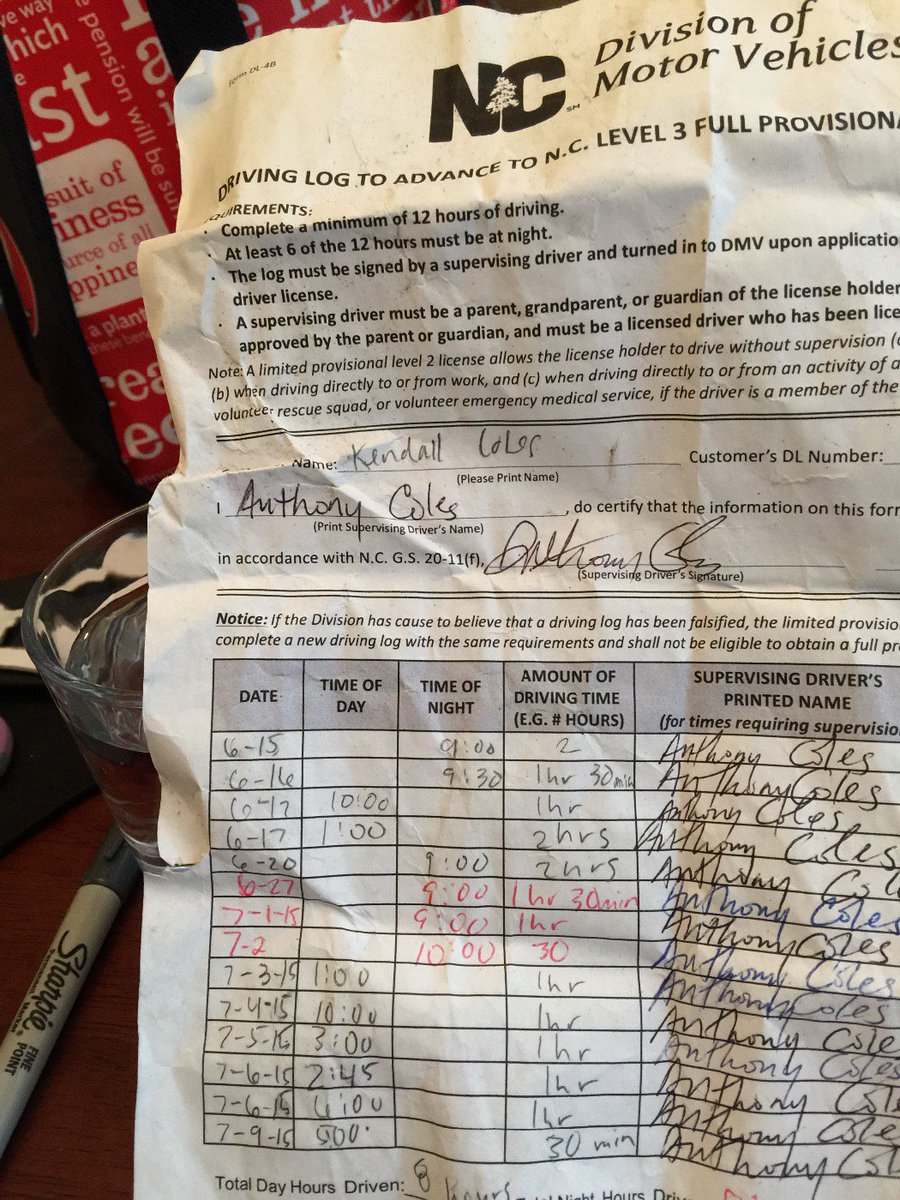 Form DL-4B
NC SM Division of
Motor Vehicles
DRIVING LOG TO ADVANCE TO N.C. LEVEL 3 FULL PROVISIONA
QUIREMENTS:
· Complete a minimum of 12 hours of driving.
· At least 6 of the 12 hours must be at night.
· The log must be signed by a supervising driver and turned in to DMV upon application
driver license.
· A supervising driver must be a parent, grandparent, or guardian of the license holder
approved by the parent or guardian, and must be a licensed driver who has been lice
Note: A limited provisional level 2 license allows the license holder to drive without supervision (
(b) when driving directly to or from work, and (c) when driving directly to or from an activity of a
volunteer rescue squad, or volunteer emergency medical service, if the driver is a member of the
Name: Kendall Coles Customer's DL Number:
(Please Print Name)
I Anthony Coles, do certify that the information on this form
(Print Supervising Driver's Name)
in accordance with N.C. G.S. 20-11(f), Anthony Coles
(Supervising Driver's Signature)
Notice: If the Division has cause to believe that a driving log has been falsified, the limited provision
complete a new driving log with the same requirements and shall not be eligible to obtain a full pr
DATE TIME OF DAY TIME OF NIGHT AMOUNT OF DRIVING TIME (E.G. # HOURS) SUPERVISING DRIVER'S PRINTED NAME (for times requiring supervisio
6-15 9:00 2 Anthony Coles
6-16 9:30 1hr 30min Anthony Coles
6-17 10:00 1hr Anthony Coles
6-17 1:00 2hrs Anthony Coles
6-20 9:00 2hrs Anthony Col
6-27 9:00 1hr 30min Anthony Coles
7-1-15 9:00 1hr Anthony Coles
7-2 10:00 30 Anthony Coles
7-3-15 1:00 1hr Anthony Coles
7-4-15 10:00 1hr Anthony Coles
7-5-15 3:00 1hr Anthony Coles
7-6-15 2:45 1hr Anthony Coles
7-6-15 6:00 1hr Anthony Coles
7-9-15 500 30 min Anthony Col
Total Day Hours Driven: 8 hours
Sharpie
FINE
POINT
we way
which
pension will be su
st
suit of
iness
urce of all
ppine
a plant
these bene
rea